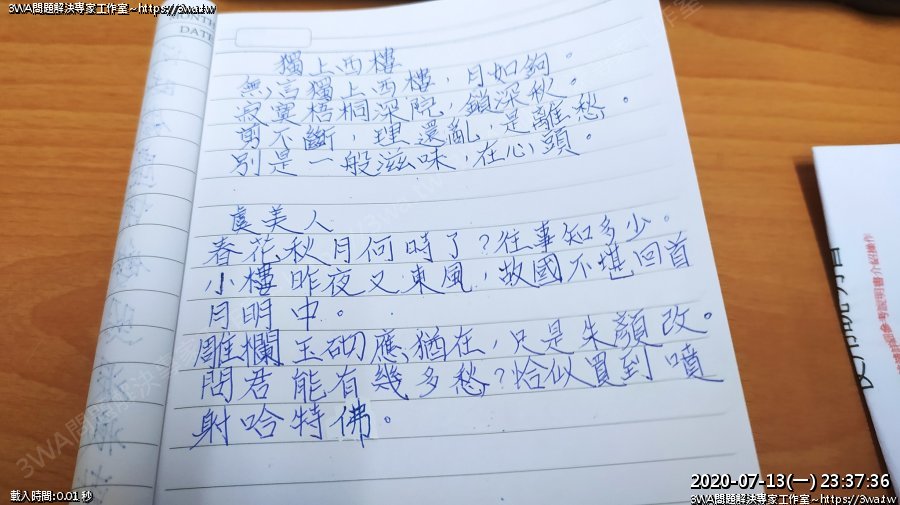 3WA問題解決專家工作室~https://3wa.tw
DATE
獨上西樓
無言獨上西樓，月如鉤。
寂寞梧桐深院，鎖深秋。
剪不斷，理還亂，是離愁。
別是一般滋味，在心頭。
虞美人
春花秋月何時了？往事知多少。
小樓昨夜又東風，故國不堪回首
月明中。
雕欄玉砌應猶在，只是朱顏改。
問君能有幾多愁？恰似買到噴
射哈特佛。
載入時間:0.01 秒
2020-07-13(一) 23:37:36
3WA問題解決專家工作室~https://3wa.tw